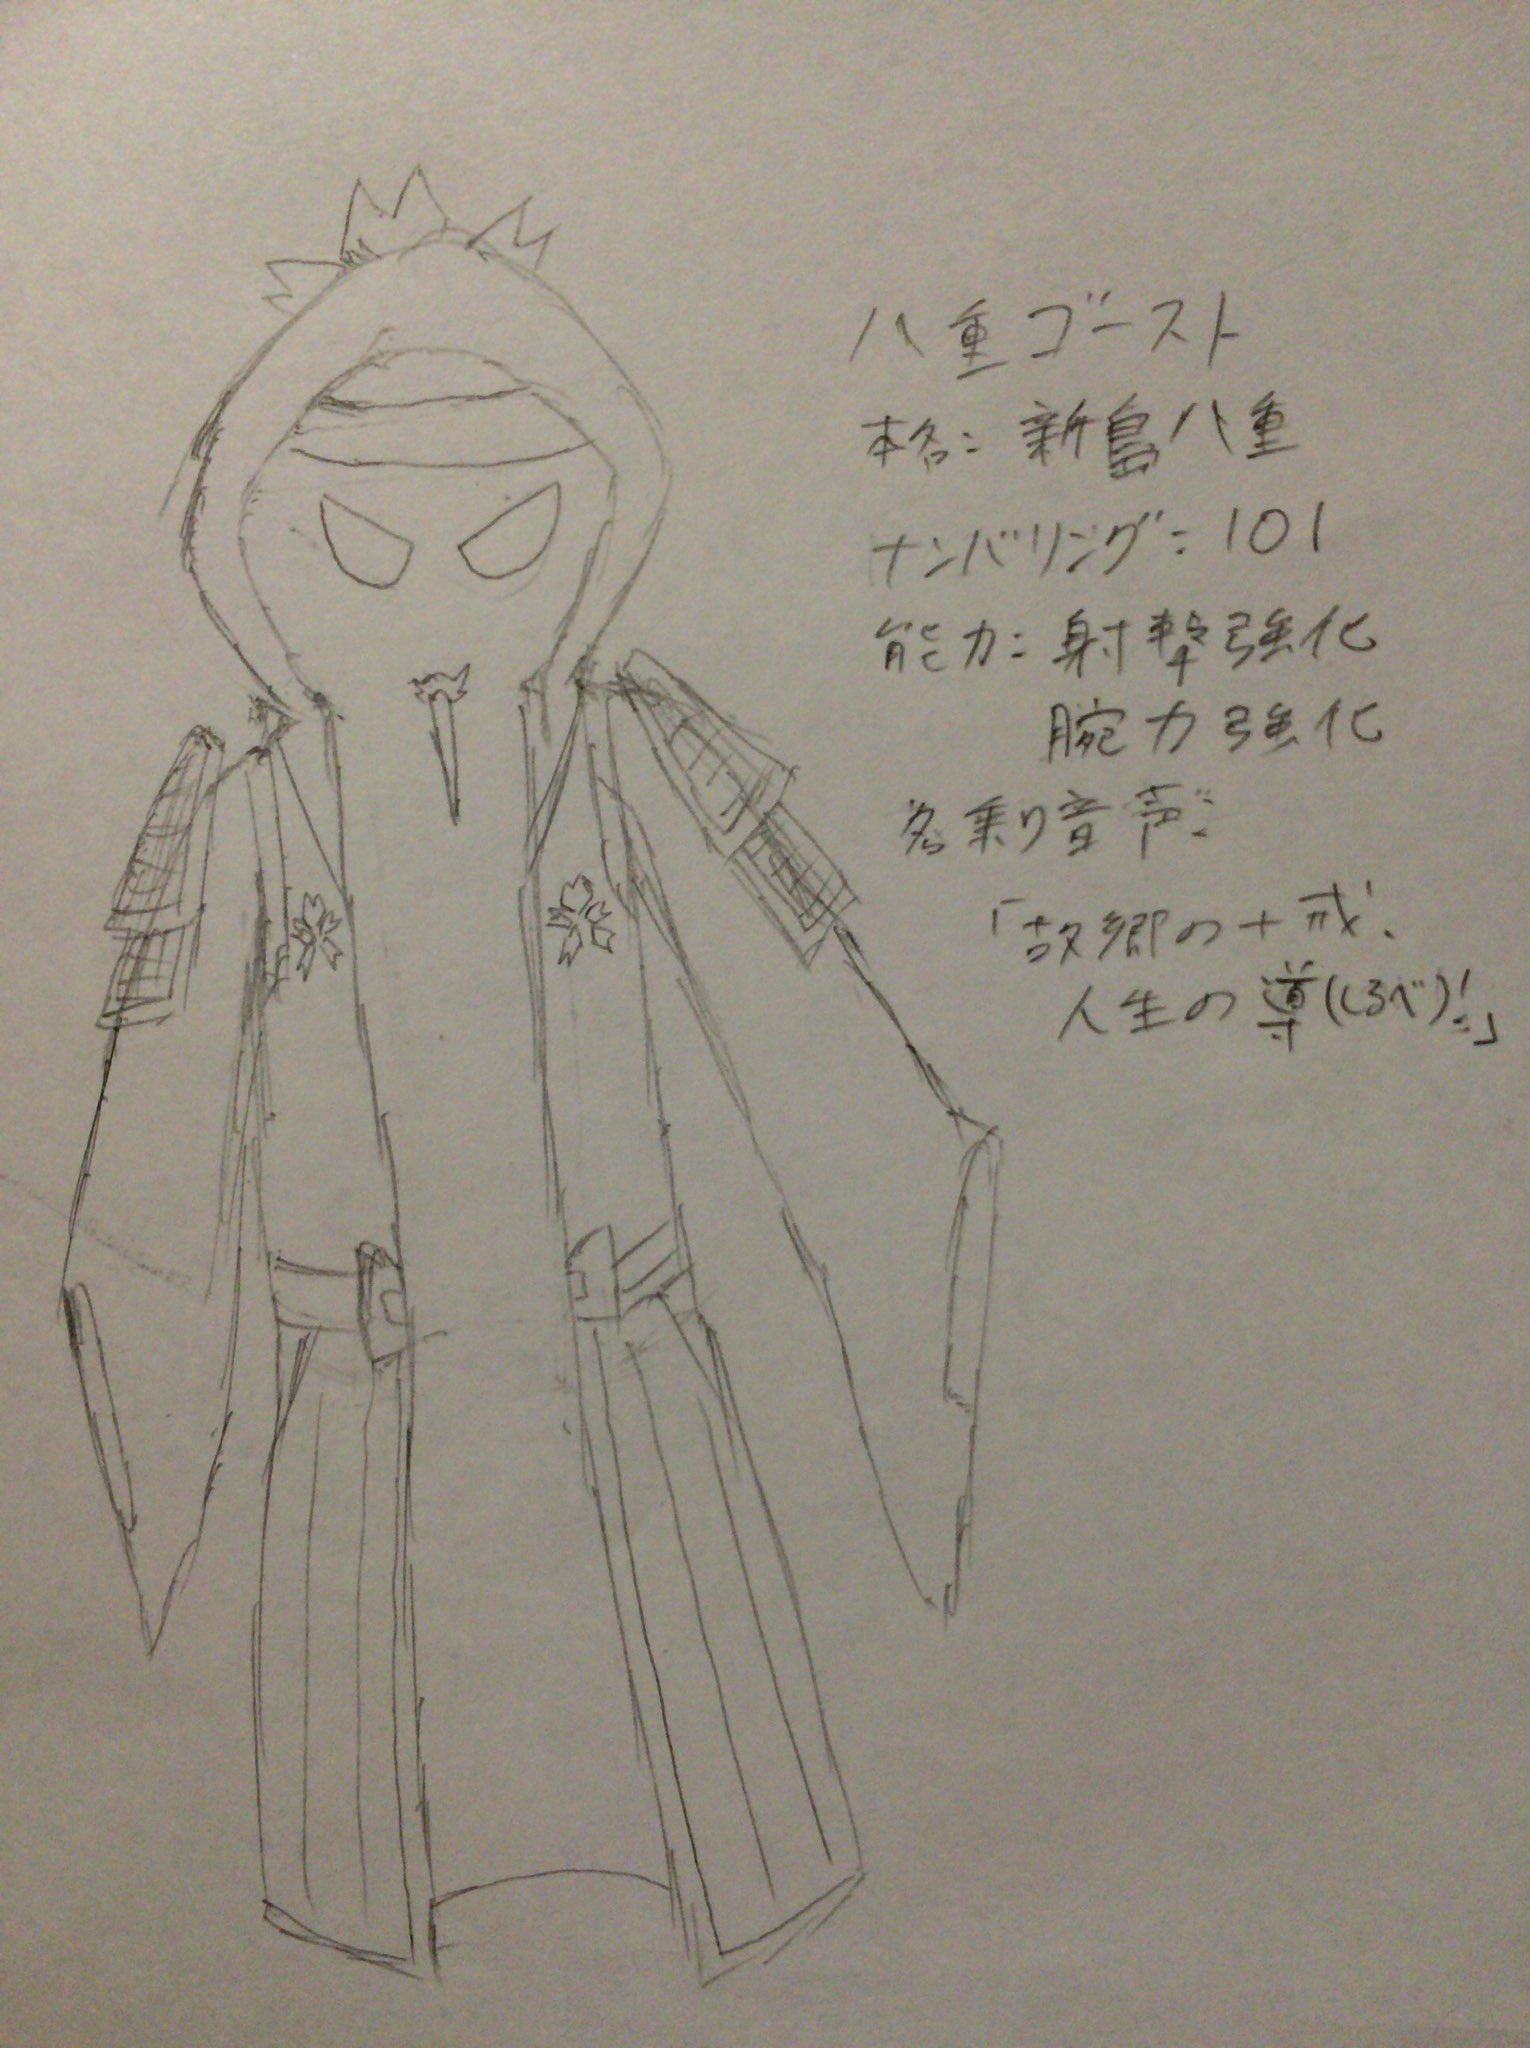 八重ゴースト
本名:新島八重
ナンバリング:101
能力:射撃強化
腕力強化
名乗り音声:
「故郷の十戒、
人生の導(しるべ)!」